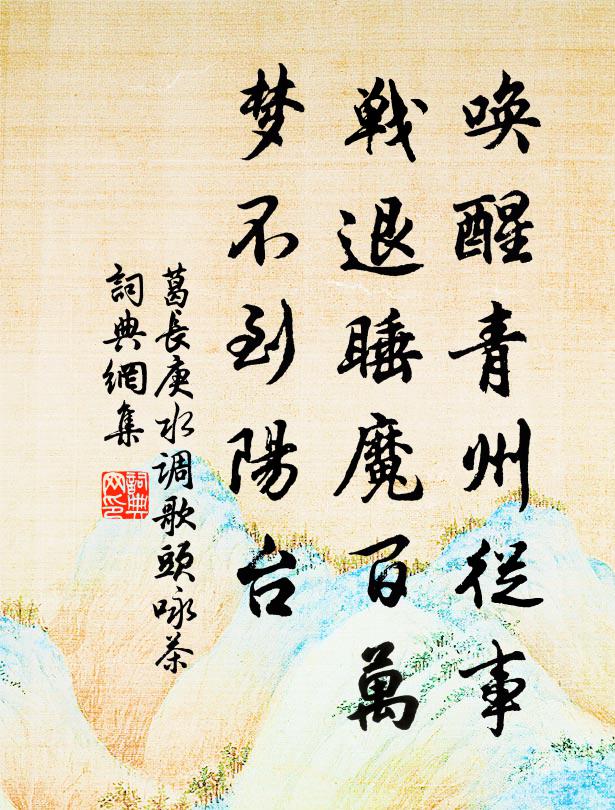 唤醒青州從事
戦退睡魔百萬
梦不到陽台
葛長庚水调歌頭咏茶
詞典網集
詞典
网印